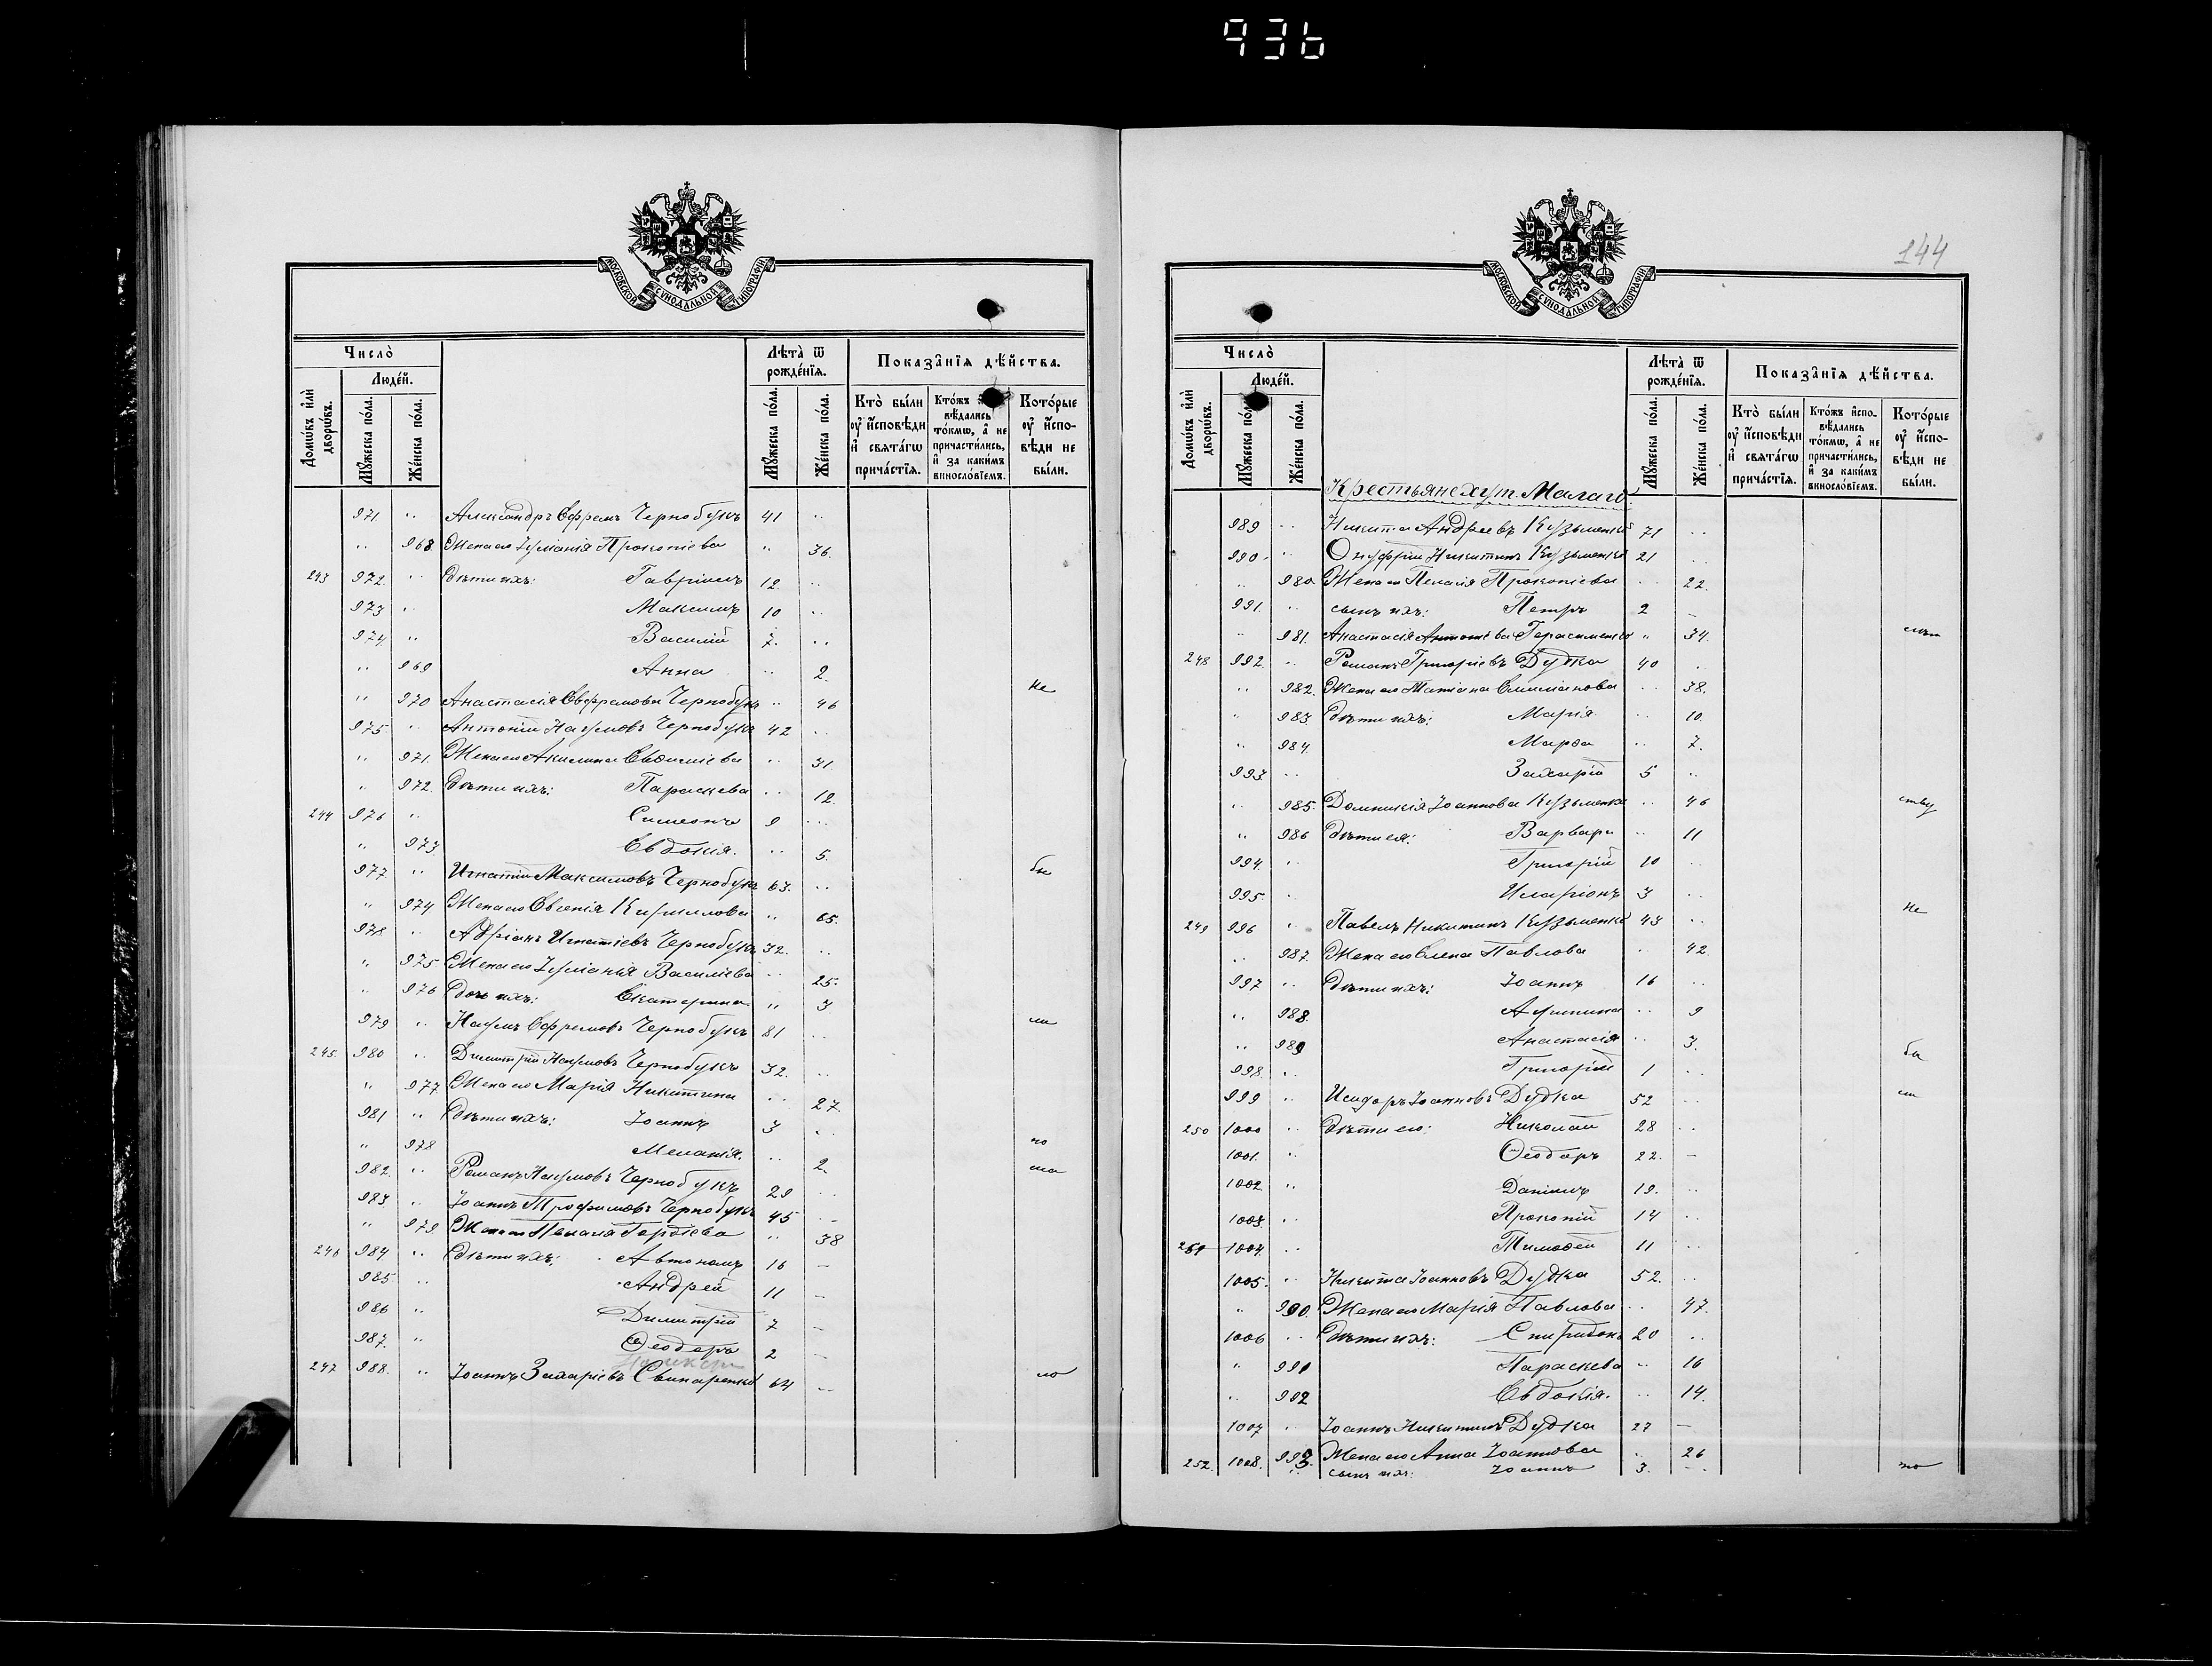 936
МОСКОВСКОЙ СѴНОДАЛЬНОЙ ТИПОГРАФІИ
Число̀
Людéй.
Домѡ́въ и҆лѝ дворѡ́въ.
Мꙋ́жеска по́ла.
Же́нска по́ла.
Лѣ́та ѿ рожде́нїѧ.
Мꙋ́жеска по́ла.
Же́нска по́ла.
Показа̑нїѧ дѣ́йства.
Кто̀ бы́ли ᲂу҆ и҆сповѣди и҆ свѧта́гѡ прича́стїѧ.
Кто́жъ вѣ́дались то́кмѡ, а҆ не причасти́лись, и҆ за каки́мъ винослóвїемъ.
Кото́рые ᲂу҆ и҆споˊвѣди не бы́ли.
971. " Александръ Ефрем. Чернобукъ 41 "
" 968 Жена его Іуліанія Прокопіева " 36.
243 972. " Дѣти ихъ: Гавріилъ 12. "
973 " Максимъ 10 "
974 " Василій 7. "
" 969 Анна " 2.
" 970 Анастасія Евфремова Чернобукъ " 46 не
975 " Антоній Наумовъ Чернобукъ 42 "
" 971. Жена его Акилина Евдоміева " 31.
" 972. Дѣти ихъ: Параскева " 12.
244 976 " Симеонъ 9 "
" 973 Евдокія. " 5.
977 " Игнатій Максимовъ Чернобукъ 63. " бы
" 974 Жена его Евгенія Кириллова " 65.
978 " Адріанъ Игнатіевъ Чернобукъ 32. "
" 975 Жена его Іуліанія Василіева " 25.
" 976 Дочь ихъ: Екатерина " 3
979 " Наумъ Ефремовъ Чернобукъ 81 " ли
245. 980 " Димитрій Наумовъ Чернобукъ 32. "
" 977 Жена его Марія Никитина " 27.
981 " Дѣти ихъ: Іоаннъ 3 "
" 978 Меланія. " 2. по
982. " Романъ Наумовъ Чернобукъ 29 "
983 " Іоаннъ Трофимовъ Чернобукъ 45 –
" 979. Жена его Пелагія Гордіева " 38
246 984 " Дѣти ихъ: Автономъ 16 –
985 " Андрей 11 –
986 " Димитрій 7 –
987. " Ѳеодоръ 2 –
247 988. " Іоаннъ Захаріевъ Свинаренко 64 – ло
144
МОСКОВСКОЙ СѴНОДАЛЬНОЙ ТИПОГРАФІИ
Число̀
Людéй.
Домѡ́въ и҆лѝ дворѡ́въ.
Мꙋ́жеска пол
Же́нска по́ла.
Лѣ́та ѿ рожде́нїѧ.
Мꙋ́жеска по́ла.
Же́нска по́ла.
Показа̑нїѧ дѣ́йства.
Кто̀ бы́ли ᲂу҆ и҆сповѣди и҆ свѧта́гѡ прича́стїѧ.
Кто́жъ и҆споˊвѣдались то́кмѡ, а҆ не причасти́лись, и҆ за каки́мъ винослóвїемъ.
Кото́рые ᲂу҆ и҆споˊвѣди не бы́ли.
Крестьяне хут. Малаго
989 " Никита Андреевъ Кузьменко 71 "
990 " Онуфрій Никитинъ Кузьменко 21 "
" 980 Жена его Пелагія Прокопіева " 22.
991. " сынъ ихъ: Петръ 2 –
" 981. Анастасія Антоніева Герасименко " 34.
248 992. " Романъ Григоріевъ Дудка 40 "
" 982. Жена его Татіана Емиліанова " 38.
" 983 Дѣти ихъ: Марія " 10.
" 984. Марѳа " 7.
993. " Захарій 5 "
" 985. Домникія Іоаннова Кузьменко " 46 ству
" 986 Дѣти ея: Варвара " 11
994. " Григорій 10 "
995. " Иларіонъ 3 "
249 996 " Павелъ Никитинъ Кузьменко 43 " не
" 987. Жена его Елена Павлова " 42
997 " Дѣти ихъ: Іоаннъ 16 "
" 988. Агрипина " 9
" 989 Анастасія " 3.
998. " Григорій 1 " бы
999 " Исидоръ Іоанновъ Дудка 52 " ли
250 1000 " Дѣти его: Николай 28 "
1001. " Ѳеодоръ 22. –
1002 " Даніилъ 19. "
1003. " Прокопій 14 "
251 1004. " Тимоѳей 11 "
1005. " Никита Іоанновъ Дудка 52. "
" 990. Жена его Марія Павлова " 47.
1006 " Дѣти ихъ: Спиридонъ 20 "
" 991 Параскева " 16
" 992 Евдокія. " 14.
1007 " Іоаннъ Никитинъ Дудка 27 –
" 993. Жена его Анна Іоаннова " 26
252. 1008. " сынъ ихъ: Іоаннъ 3. – по